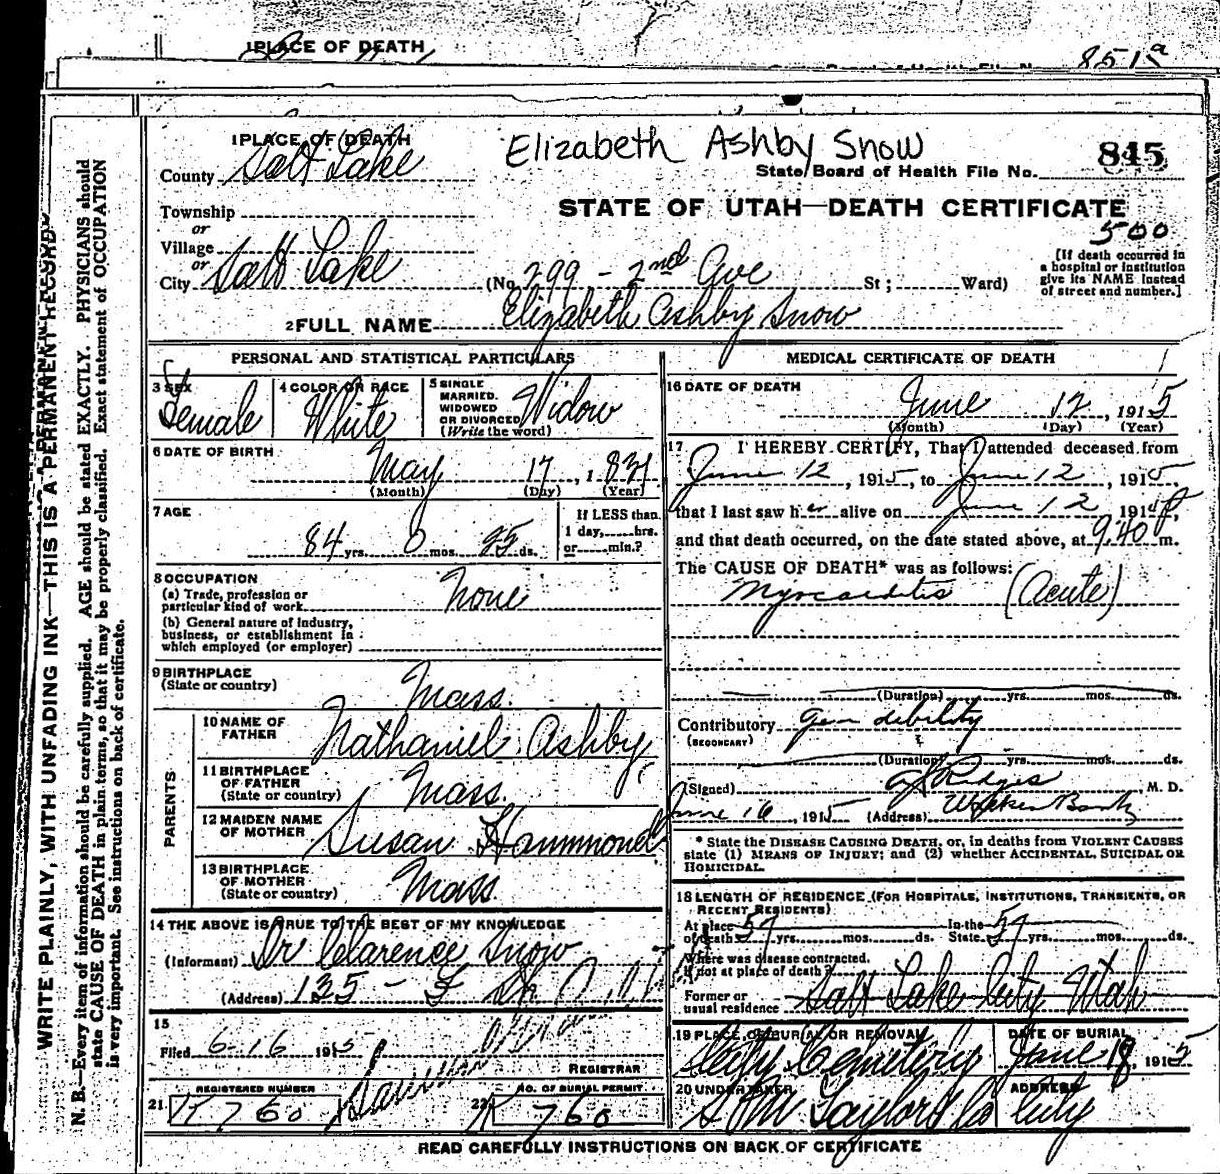 1 PLACE OF DEATH
851a
1 PLACE OF DEATH
Elizabeth Ashby Snow
845
County Salt Lake
State Board of Health File No.
Township
STATE OF UTAH—DEATH CERTIFICATE
or
500
Village
or
City Salt Lake (No. 299 - 2nd Ave St; Ward)
[If death occurred in a hospital or institution give its NAME instead of street and number.]
2 FULL NAME Elizabeth Ashby Snow
PERSONAL AND STATISTICAL PARTICULARS
3 SEX Female
4 COLOR OR RACE White
5 SINGLE MARRIED. WIDOWED OR DIVORCED (Write the word) Widow
6 DATE OF BIRTH May 17, 1831
(Month) (Day) (Year)
7 AGE 84 yrs. 0 mos. 25 ds.
If LESS than 1 day, hrs. or min.?
8 OCCUPATION
(a) Trade, profession or particular kind of work None
(b) General nature of industry, business, or establishment in which employed (or employer)
9 BIRTHPLACE (State or country) Mass.
PARENTS
10 NAME OF FATHER Nathaniel Ashby
11 BIRTHPLACE OF FATHER (State or country) Mass.
12 MAIDEN NAME OF MOTHER Susan Hammond
13 BIRTHPLACE OF MOTHER (State or country) Mass.
14 THE ABOVE IS TRUE TO THE BEST OF MY KNOWLEDGE
(Informant) Dr Clarence Snow
(Address) 125 - F
15
Filed 6-16 1915
REGISTRAR
REGISTERED NUMBER
21 K 760
NO. OF BURIAL PERMIT
22 K 760
MEDICAL CERTIFICATE OF DEATH
16 DATE OF DEATH
June 12, 1915
(Month) (Day) (Year)
17 I HEREBY CERTIFY, That I attended deceased from
June 12, 1915, to June 12, 1915
that I last saw her alive on June 12 191
and that death occurred, on the date stated above, at 9:40 P m.
The CAUSE OF DEATH* was as follows:
Myocarditis (Acute)
(Duration) yrs. mos. ds.
Contributory Gen debility
(SECONDARY)
(Duration) yrs. mos. ds.
(Signed) Ridges, M. D.
June 16, 1915 (Address) Walker Bank
* State the DISEASE CAUSING DEATH, or, in deaths from VIOLENT CAUSES
state (1) MEANS OF INJURY; and (2) whether ACCIDENTAL, SUICIDAL OR
HOMICIDAL.
18 LENGTH OF RESIDENCE (FOR HOSPITALS, INSTITUTIONS, TRANSIENTS, OR
RECENT RESIDENTS)
At place of death 57 yrs. mos. ds. In the State 57 yrs. mos. ds.
Where was disease contracted, if not at place of death?
Former or usual residence Salt Lake City Utah
19 PLACE OF BURIAL OR REMOVAL City Cemetery
DATE OF BURIAL June 18, 1915
20 UNDERTAKER S M Taylor & Co
ADDRESS City
READ CAREFULLY INSTRUCTIONS ON BACK OF CERTIFICATE
WRITE PLAINLY, WITH UNFADING INK—THIS IS A PERMANENT RECORD
N. B.—Every item of information should be carefully supplied. AGE should be stated EXACTLY. PHYSICIANS should
state CAUSE OF DEATH in plain terms, so that it may be properly classified. Exact statement of OCCUPATION
is very important. See instructions on back of certificate.